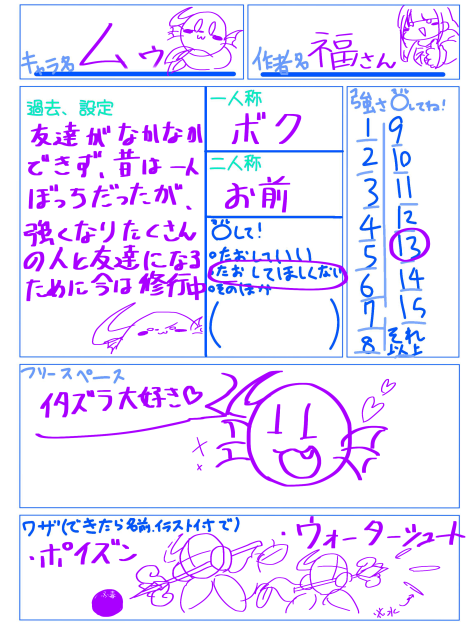 キャラ名 ムゥ
作者名 福さん
過去、設定
友達がなかなか
できず、昔は一人
ぼっちだったが、
強くなりたくさん
の人と友達になる
ために今は修行中
一人称
ボク
二人称
お前
して!
・たおしていい
・たおしてほしくない
・そのほか
( )
強さ してね!
1
2
3
4
5
6
7
8
9
10
11
12
13
14
15
それ
以上
フリースペース
イタズラ大好き♡
ワザ(できたら名前、イラスト付きで)
・ポイズン
・ウォーターシュート